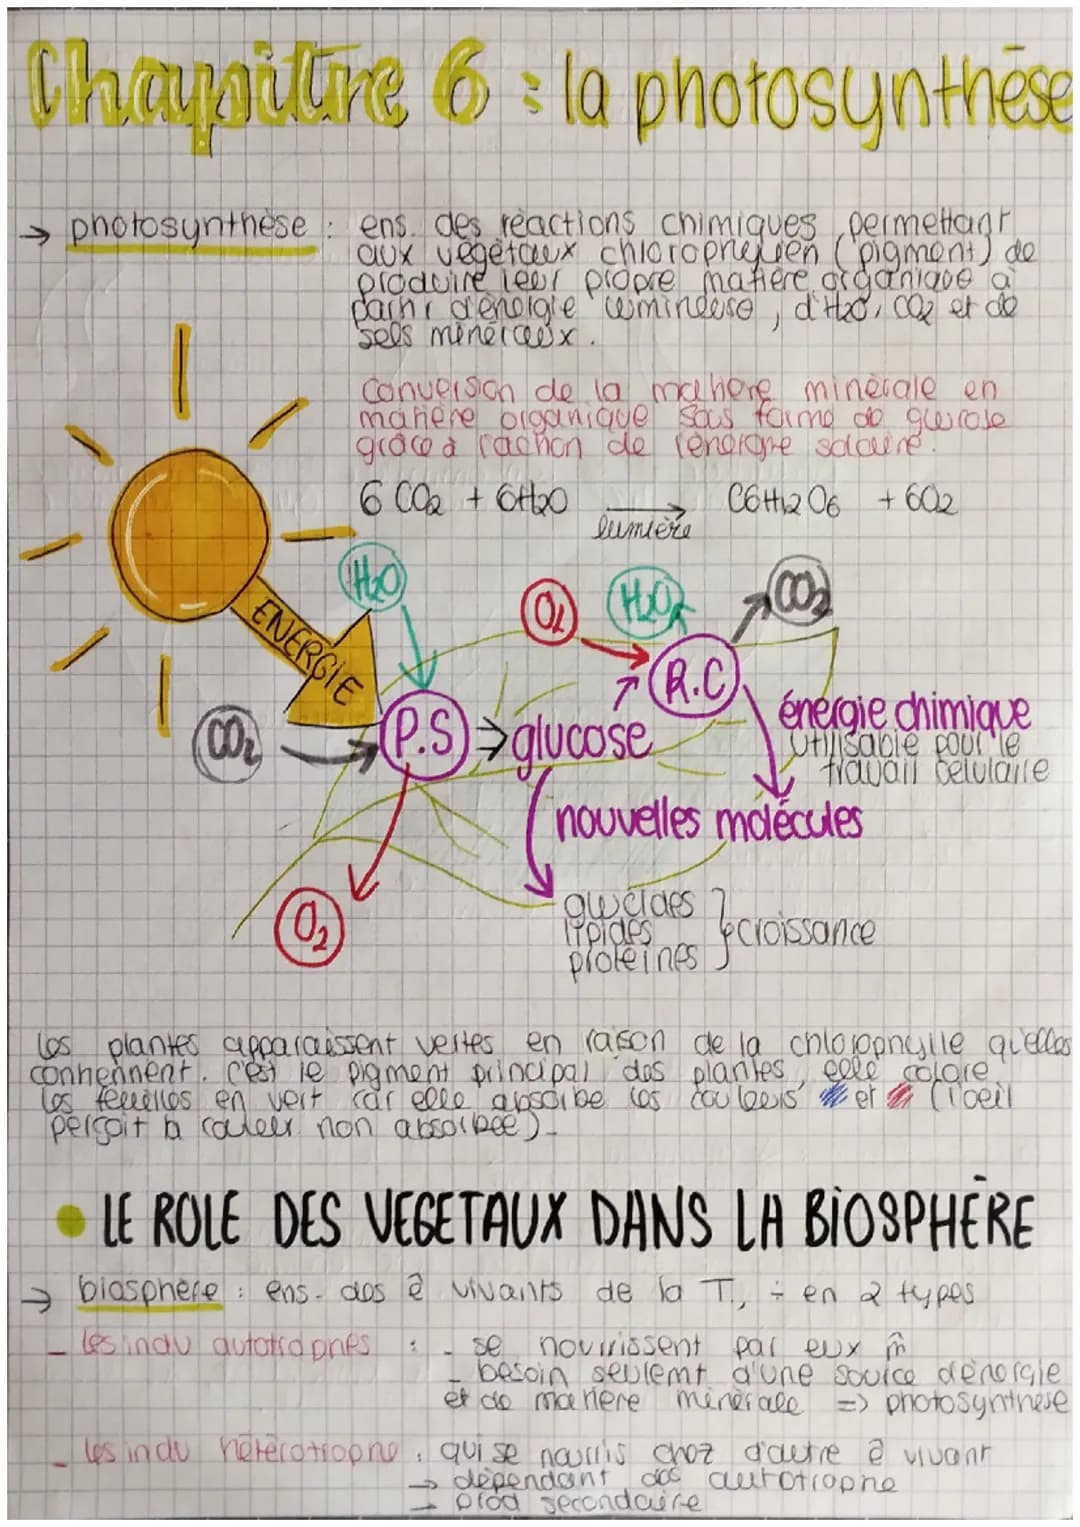 Chapitre 6 : la photosynthèse
→ photosynthèse : ens. des réactions chimiques permettant
aux végétaux chlorophyllien (pigment) de
produire leur propre matière organique à
partir d'énergie lumineuse, d'H2O, CO2 et de
sels minéraux.
Conversion de la matière minérale en
matière organique sous forme de glucose
grâce à l'action de l'énergie solaire.
6 CO2 + 6H2O → C6H12O6 + 6O2
lumière
H2O
O2
H2O
CO2
ENERGIE
R.C
CO2
P.S ⇒ glucose
énergie chimique
utilisable pour le
travail celulaire
nouvelles molécules
O2
glucides
lipides
proteines
croissance
Les plantes apparaissent vertes en raison de la chlorophylle qu'elles
contiennent. C'est le pigment principal des plantes, elle colore
les feuilles en vert car elle absorbe les couleurs et (l'oeil
perçoit la couleur non absorbée).
• LE ROLE DES VEGETAUX DANS LA BIOSPHÈRE
→ biosphère : ens. des ê vivants de la T, ÷ en 2 types
- les indu autotrophes : - se nourrissent par eux m̂
- besoin seulemt d'une source d'énergie
et de matière minérale => photosynthèse
- les indu hétérotrophe : qui se nourris chez d'autre ê vivant
→ dépendant des autotrophe
→ prod secondaire